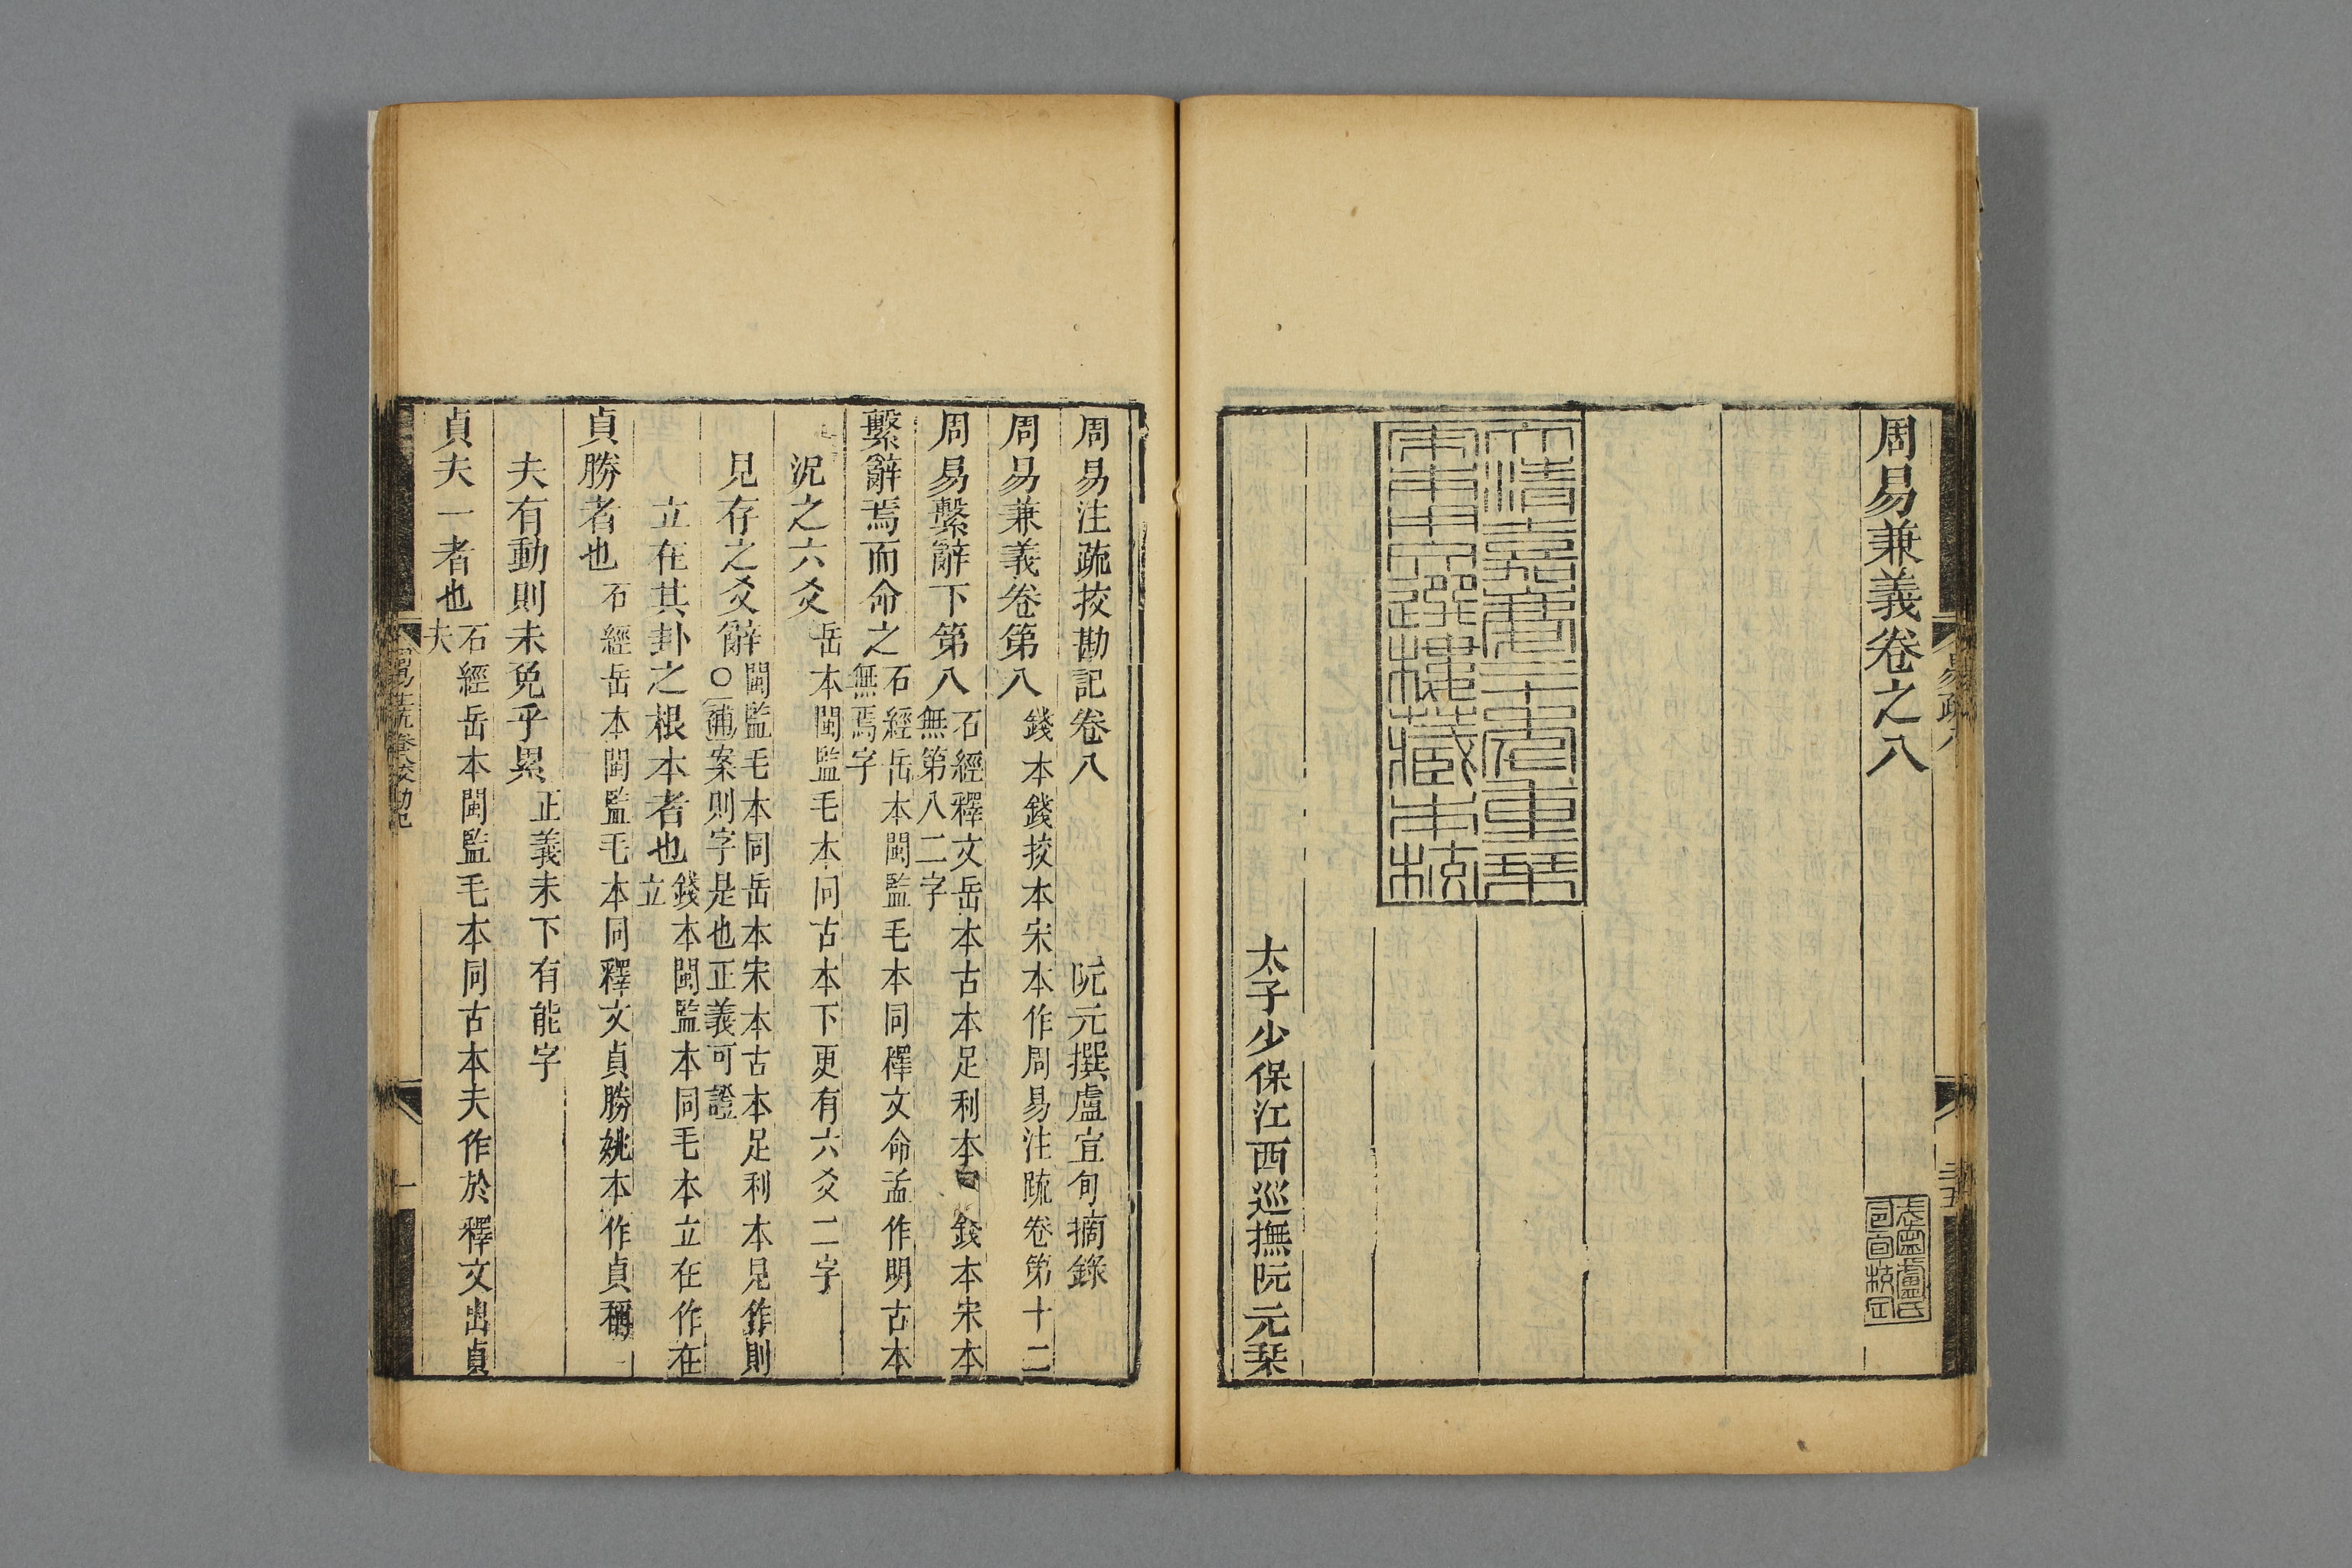 周易兼義卷之八
大清嘉慶二十年重栞
宋本文選樓藏本校
太子少保江西巡撫阮元栞
周易注疏挍勘記卷八 阮元撰盧宣旬摘錄
周易兼義卷第八 錢本錢挍本宋本作周易注疏卷第十二
周易繫辭下第八 石經釋文岳本古本足利本同錢本宋本
無第八二字
繫辭焉而命之 石經岳本閩監毛本同釋文命孟作明古本
無焉字
況之六爻 岳本閩監毛本同古本下更有六爻二字
見存之爻辭 閩監毛本同岳本宋本古本足利本見作則
○補案則字是也正義可證
立在其卦之根本者也 錢本閩監本同毛本立在作在
立
貞勝者也 石經岳本閩監毛本同釋文貞勝姚本作貞稱
夫有動則未免乎累 正義未下有能字
貞夫一者也 石經岳本閩監毛本同古本夫作於釋文出貞
夫